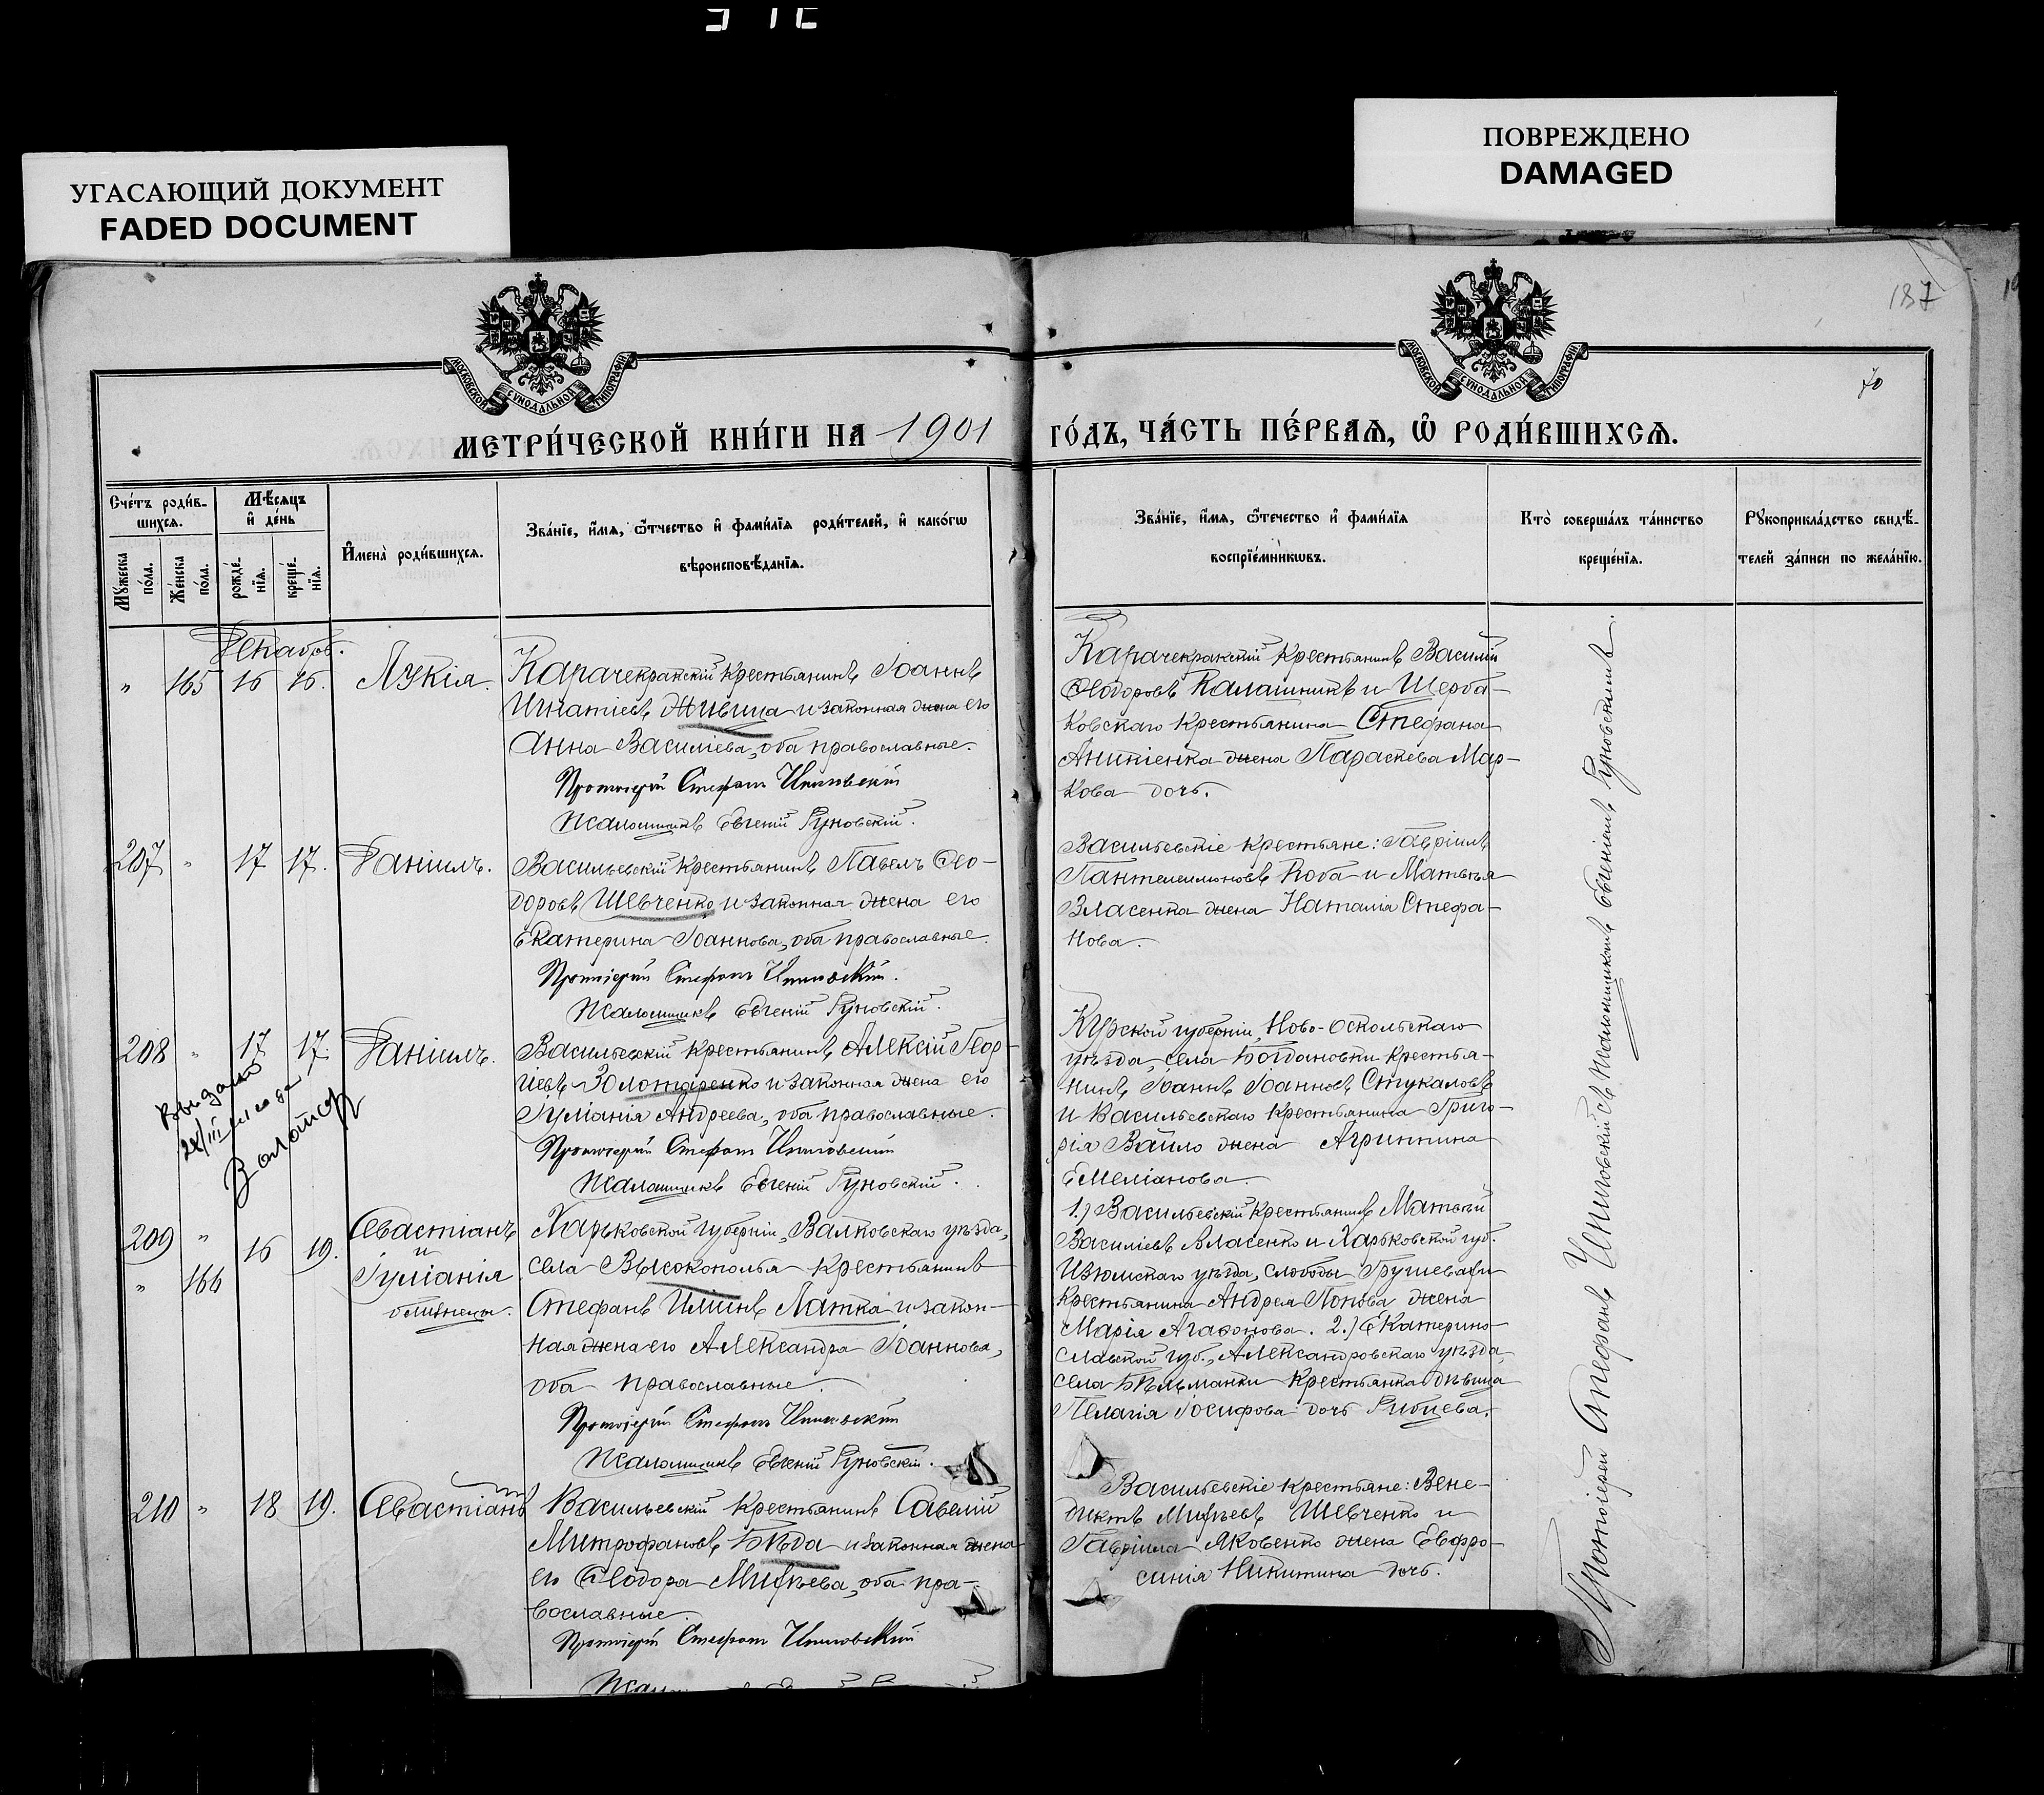 УГАСАЮЩИЙ ДОКУМЕНТ
FADED DOCUMENT
ПОВРЕЖДЕНО
DAMAGED
187
70
МОСКОВСКОЙ СУНОДАЛЬНОЙ ТИПОГРАФІИ
МОСКОВСКОЙ СУНОДАЛЬНОЙ ТИПОГРАФІИ
МЕТРИ́ЧЕСКОЙ КНИ́ГИ НА 1901 ГО́ДЪ, ЧА́СТЬ ПЕ́РВАѦ, Ѡ РОДИ́ВШИХСѦ.
Сче́тъ роди́в-
шихсѧ.
Мꙋ́жеска по́ла.
Же́нска по́ла.
Мѣ́сѧцъ
и҆ де́нь
рожде́-
нїѧ.
креще́-
нїѧ.
И҆мена̀ роди́вшихсѧ.
Зва́нїе, и҆́мѧ, ѻ҆́тчество и҆ фами́лїѧ роди́телей, и҆ како́гѡ
вѣроисповѣ́данїѧ.
Зва́нїе, и҆́мѧ, ѻ҆́течество и҆ фами́лїѧ
воспрїе́мникѡвъ.
Кто̀ соверша́лъ та́инство
креще́нїѧ.
Рꙋкоприкла́дство свидѣ́-
телей за́писи по жела́нїю.
Декабрь.
" 165 16 16. Лукія.
Карачекракскій крестьянинъ Іоаннъ
Игнатіевъ Живица и законная жена его
Анна Василіева, оба православные.
Протоіерей Стефанъ Чниговскій
Псаломщикъ Евгеній Руновскій.
Карачекракскій крестьянинъ Василій
Ѳеодоровъ Калашникъ и Щерба-
ковскаго крестьянина Стефана
Аникіенка жена Параскева Мар-
кова дочь.
207 " 17 17. Даніилъ.
Васильевскій крестьянинъ Павелъ Ѳео-
доровъ Шевченко и законная жена его
Екатерина Іоаннова, оба православные.
Протоіерей Стефанъ Чниговскій.
Псаломщикъ Евгеній Руновскій.
Васильевскіе крестьяне: Гавріилъ
Пантелеимоновъ Коба и Матвѣя
Власенка жена Наталія Стефа-
нова.
208 " 17 17. Даніилъ.
Выдано
28/III года
Васильевскій крестьянинъ Алексій Геор-
гіевъ Золотаренко и законная жена его
Іуліанія Андреева, оба православные.
Протоіерей Стефанъ Чниговскій
Псаломщикъ Евгеній Руновскій.
Курской губерніи, Ново-Оскольскаго
уѣзда, села Богдановки крестья-
нинъ Іоаннъ Іоанновъ Стукаловъ
и Васильевскаго крестьянина Григо-
рія Вайло жена Агриппина
Емеліанова.
209 " 16 19. Севастіанъ
и
" 166 Іуліанія
близнецы.
Харьковской губерніи, Валковскаго уѣзда,
села Высокополья крестьянинъ
Стефанъ Иліинъ Латка и закон-
ная жена его Александра Іоаннова,
оба православные.
Протоіерей Стефанъ Чниговскій
Псаломщикъ Евгеній Руновскій.
1.) Васильевскій крестьянинъ Матвѣй
Василіевъ Власенко и Харьковской губ.
Изюмскаго уѣзда, слободы Грушевахи
крестьянина Андрея Попова жена
Марія Агаѳонова. 2.) Екатерино-
славской губ., Александровскаго уѣзда,
села Бѣльманки крестьянка дѣвица
Пелагія Іосифова дочь
210 " 18 19. Севастіанъ
Васильевскій крестьянинъ Савелій
Митрофановъ Бѣда и законная жена
его Ѳеодора Миѳѣева, оба пра-
вославные.
Протоіерей Стефанъ Чниговскій
Васильевскіе крестьяне: Вене-
диктъ Миѳѣевъ Шевченко и
Гавріила Яковенко жена Евфро-
синія Никитина дочь.
Протоіерей Стефанъ Чниговскій съ псаломщикомъ Евгеніемъ Руновскимъ.